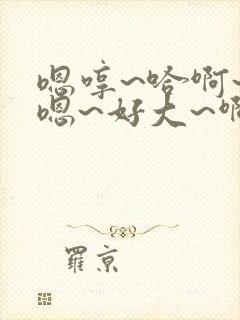 嗯哼~哈啊~
嗯~好大~啊
羅京